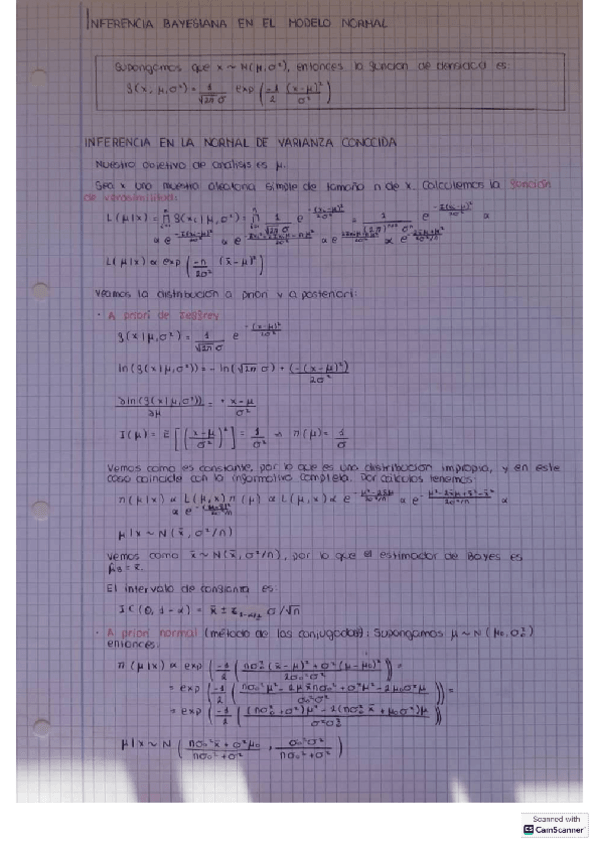 INFERENCIA BAYESIANA EN EL MODELO NORMAL
Supongamos que x ~ N(μ,σ²), entonces la función de densidad es:
f(x, μ,σ²) = 1/(√2π σ) exp(-1/2 (x-μ)²/σ²)
INFERENCIA EN LA NORMAL DE VARIANZA CONOCIDA
Nuestro objetivo de análisis es μ.
Sea x una muestra aleatoria simple de tamaño n de x. Calculemos la función
de verosimilitud:
L(μ|x) = ∏ f(xi|μ,σ²) = ∏ 1/(√2π σ) e
L(μ|x) ∝ exp(-n/2σ² (x̄-μ)²)
Veamos la distribución a priori y a posteriori:
· A priori de Jeffrey
f(x|μ,σ²) = 1/(√2π σ) e^-(x-μ)²/2σ²
ln(f(x|μ,σ²)) = -ln(√2π σ) + (-(x-μ)²)/2σ²
∂ln(f(x|μ,σ²))/∂μ = + x-μ/σ²
I(μ) = E[((x-μ)/σ²)²] = 1/σ² → π(μ) = 1/σ
Vemos como es constante, por lo que es una distribución impropia, y en este
caso coincide con la informativa completa. Por cálculos tenemos:
π(μ|x) ∝ L(μ,x) π(μ) ∝ L(μ,x) ∝ e
μ|x ~ N(x̄, σ²/n)
Vemos como x̄ ~ N(x̄, σ²/n), por lo que el estimador de Bayes es
μ̂B = x̄.
El intervalo de confianza es:
IC(θ, 1-α) = x̄ ± z₁₋α/₂ σ/√n
· A priori normal (método de las conjugadas): Supongamos μ ~ N(μ₀,σ₀²)
entonces:
π(μ|x) ∝ exp(-1/2 (nσ₀²(x̄-μ)² + σ²(μ-μ₀)²
= exp(-1/2 (nσ₀²μ² - 2μx̄nσ₀² + σ²μ² - 2μ₀σ²μ
= exp(-1/2 ((nσ₀²+σ²)μ² - 2(nσ₀²x̄ + μ₀σ²)μ / σ²σ₀²))
μ|x ~ N((nσ₀²x̄ + σ²μ₀)/(nσ₀²+σ²), σ₀²σ²/(nσ₀²+σ²))
Scanned with
CamScanner